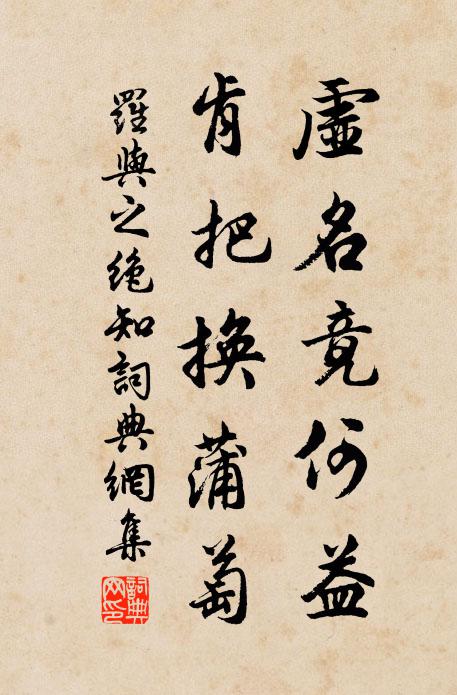 虛名竟何益
肯把換蒲萄
羅與之絕知詞典網集
詞典网印